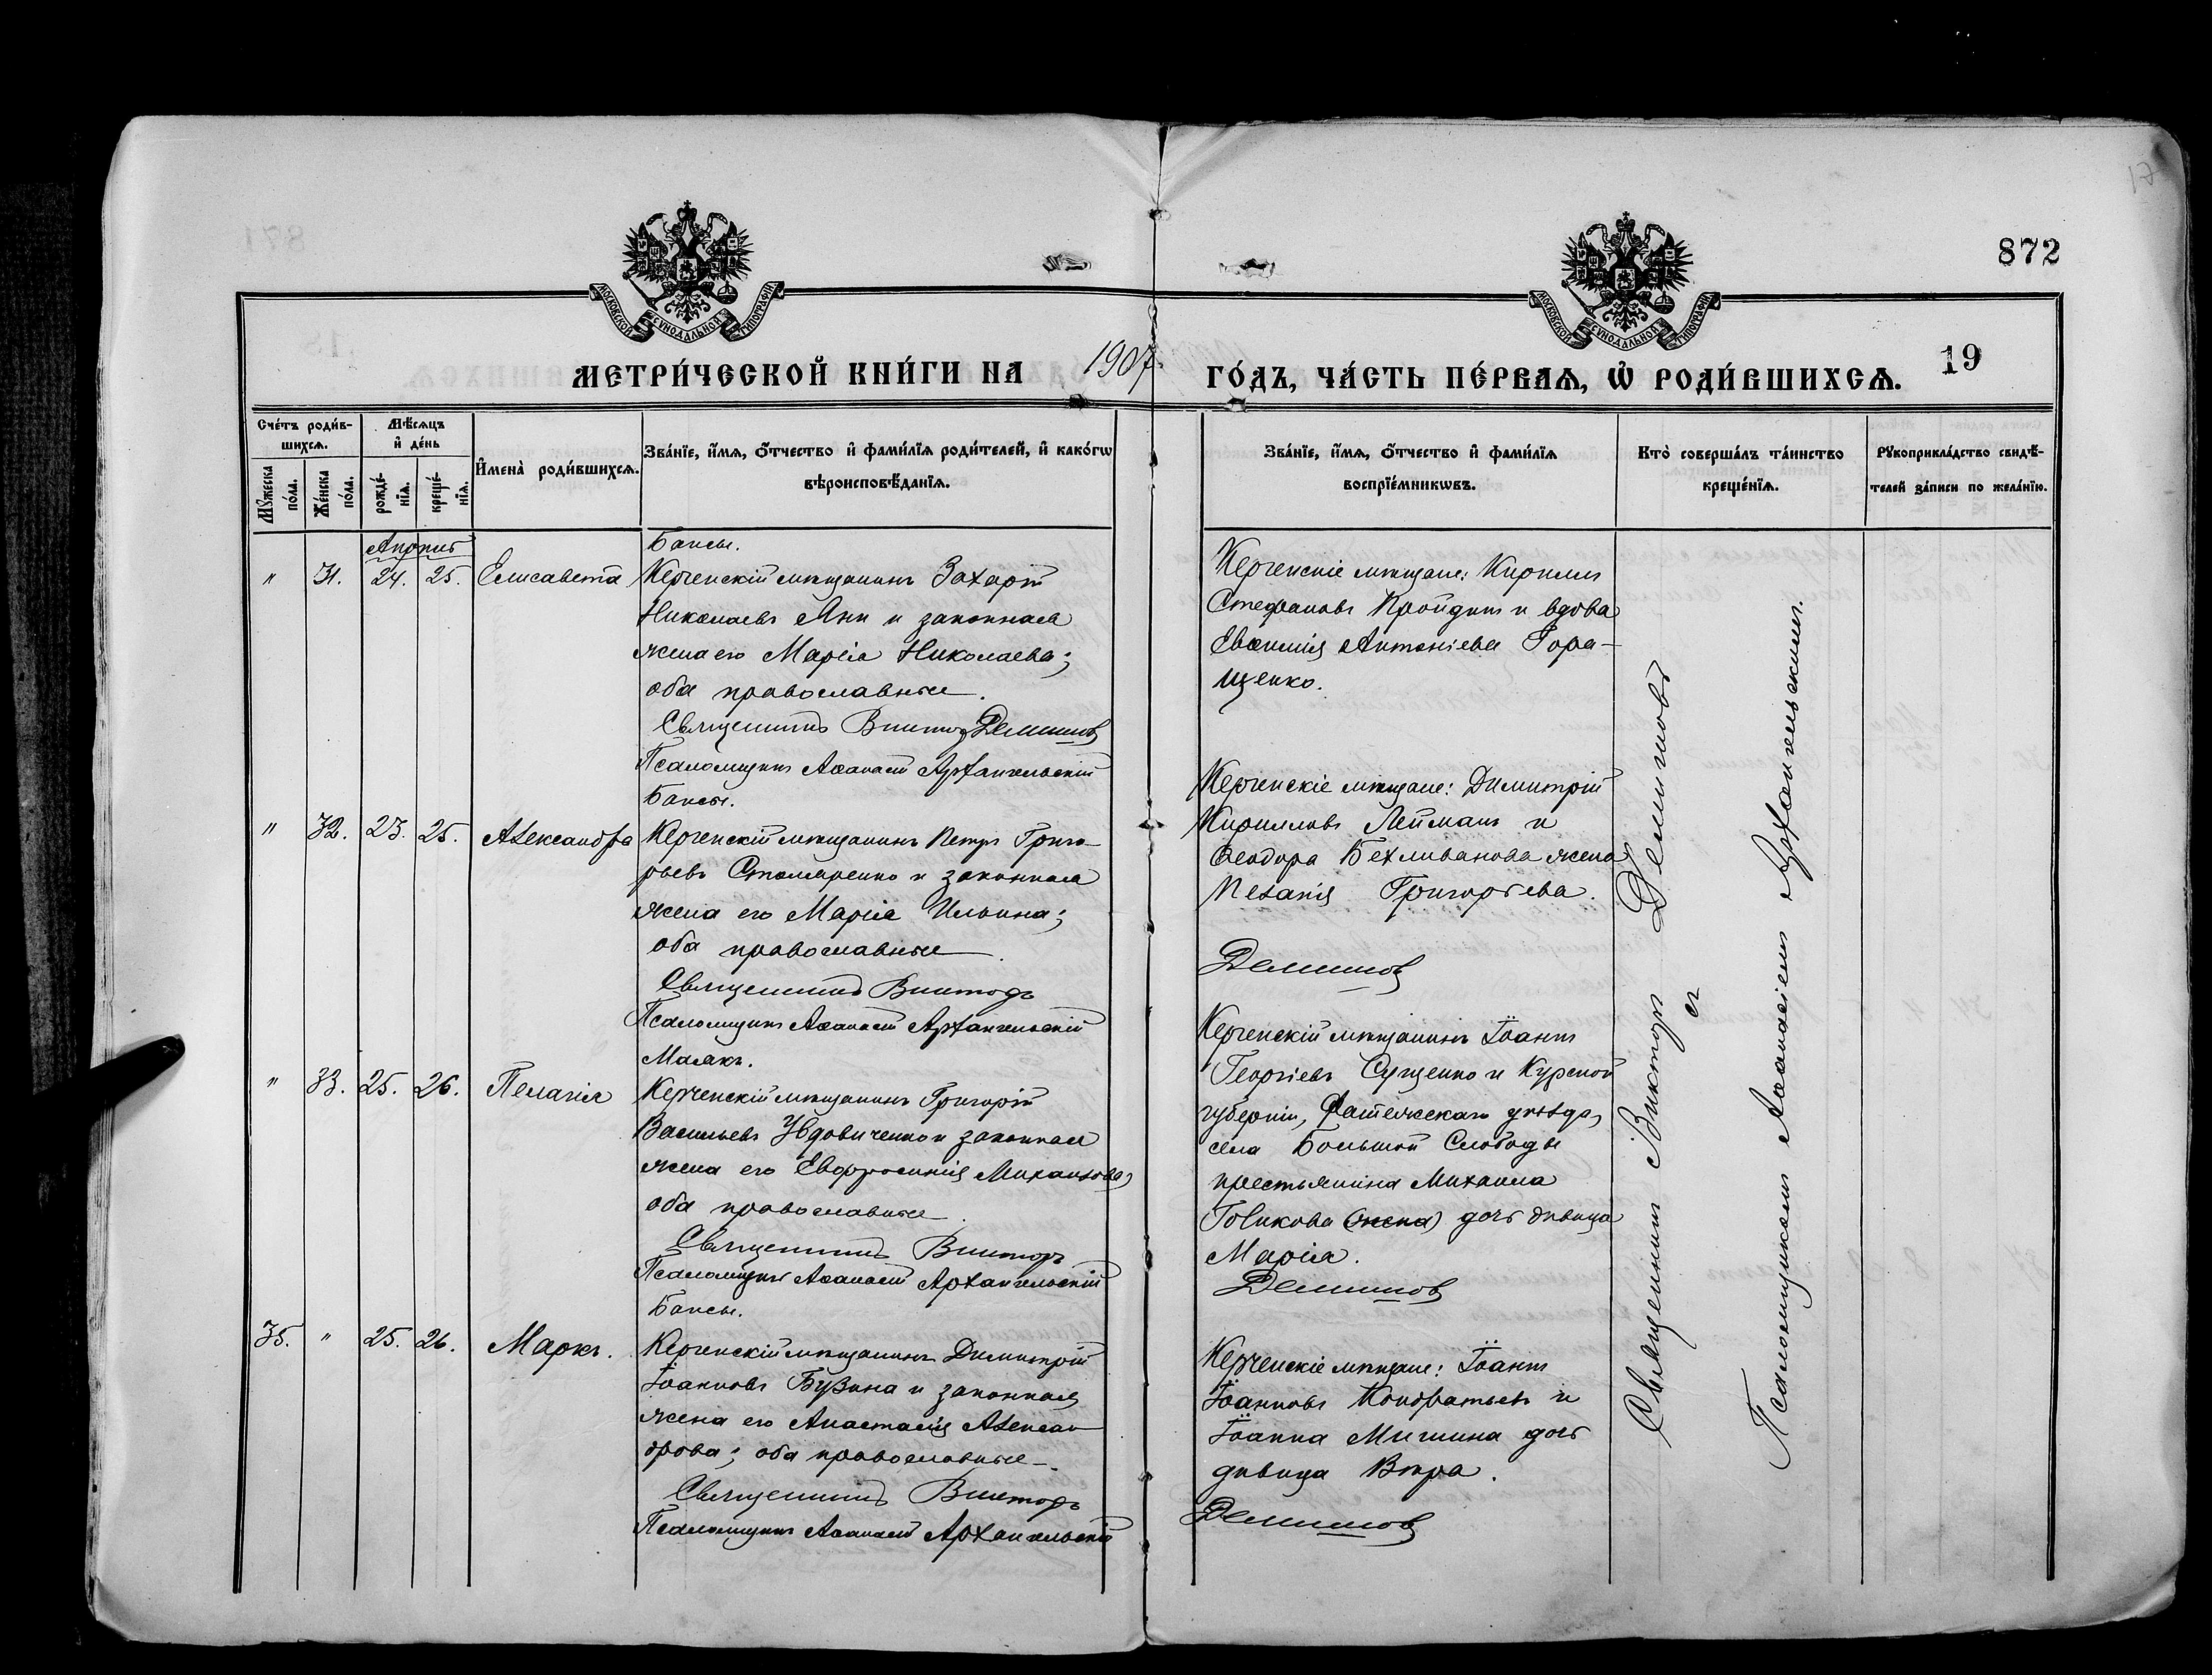 872
МОСКОВСКОЙ СѴНОДАЛЬНОЙ ТИПОГРАФІИ
МОСКОВСКОЙ СѴНОДАЛЬНОЙ ТИПОГРАФІИ
МЕТРИ́ЧЕСКОЙ КНИ́ГИ НА 1907 ГО́ДЪ, ЧА́СТЬ ПЕ́РВАѦ, Ѡ҆ РОДИ́ВШИХСѦ. 19
Сче́тъ роди́в-
шихсѧ.
Мꙋ́жеска по́ла.
Же́нска по́ла.
Мѣ́сѧцъ
и҆ де́нь
рожде́-
нїѧ.
креще́-
нїѧ.
И҆мена̀ роди́вшихсѧ.
Зва́нїе, и҆́мѧ, ѻ҆́тчество и҆ фами́лїѧ роди́телей, и҆ како́гѡ
вѣроисповѣ́данїѧ.
Зва́нїе, и҆́мѧ, ѻ҆́тчество и҆ фами́лїѧ
воспрїе́мникѡвъ.
Кто̀ соверша́лъ та́инство
креще́нїѧ.
Рꙋкоприкла́дство свидѣ́-
телей за́писи по жела́нїю.
Апрѣль
" 31. 24. 25. Елисавета
Баксы.
Керченскій мѣщанинъ Захарій
Николаевъ Яни и законная
жена его Марія Николаева;
оба православные.
Священникъ Викторъ Демишовъ
Псаломщикъ Аѳанасій Архангельскій
Керченскіе мѣщане: Кириллъ
Стефановъ Пройдит и вдова
Евѳимія Антоніева Гора-
щенко.
" 32. 23. 25. Александра
Баксы.
Керченскій мѣщанинъ Петръ Григо-
рьевъ Столяренко и законная
жена его Марія Ильина;
оба православные.
Священникъ Викторъ
Псаломщикъ Аѳанасій Архангельскій
Керченскіе мѣщане: Димитрій
Кирилловъ Лейманъ и
Ѳеодора Бехливанова жена
Пелагія Григорьева.
Демишовъ
" 33. 25. 26. Пелагія
Маякъ.
Керченскій мѣщанинъ Григорій
Васильевъ Удовиченко и законная
жена его Евфросинія Михаилова
оба православные.
Священникъ Викторъ
Псаломщикъ Аѳанасій Архангельскій
Керченскій мѣщанинъ Іоаннъ
Георгіевъ Сущенко и Курской
губерніи, Фатежскаго уѣзда,
села Большой Слободы
крестьянина Михаила
Говикова (жена) дочь дѣвица
Марія.
Демишовъ
35. " 25. 26. Маркъ.
Баксы.
Керченскій мѣщанинъ Димитрій
Іоанновъ Бузина и законная
жена его Анастасія Алексан-
дрова; оба православные.
Священникъ Викторъ
Псаломщикъ Аѳанасій Архангельскій
Керченскіе мѣщане: Іоаннъ
Іоанновъ Кондратьевъ и
Іоанна Мишина дочь
дѣвица Вѣра.
Демишовъ
Священникъ Викторъ Демишовъ
съ
Псаломщикомъ Аѳанасіемъ Архангельскимъ.